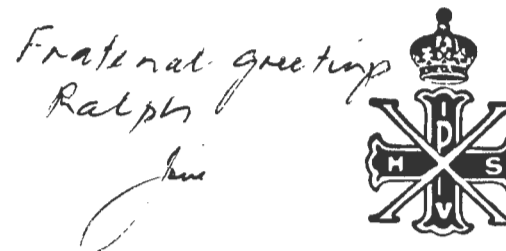 Fraternal greetings
Ralph
I
D
H S
V